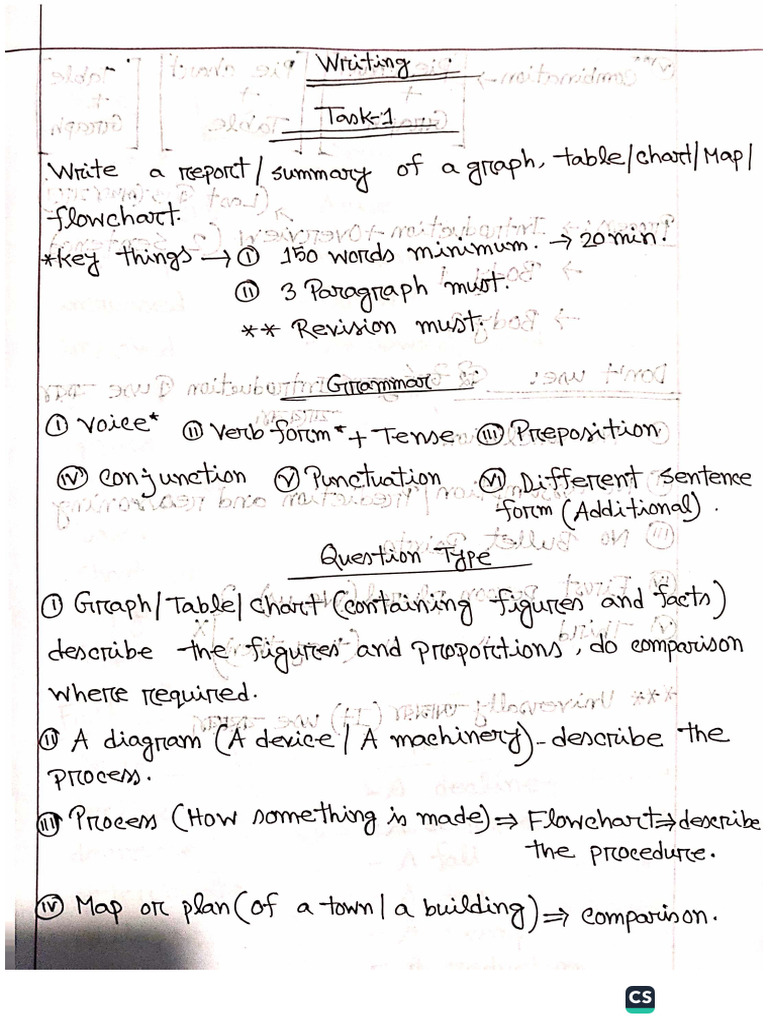 Writing
Task-1
Write a report/summary of a graph, table/chart/Map/
flowchart.
*key things → ① 150 words minimum. → 20 min.
② 3 Paragraph must.
** Revision must.
Grammar
① Voice* ② Verb form* + Tense ③ Preposition
④ Conjunction ⑤ Punctuation ⑥ Different sentence
form (Additional).
Question Type
① Graph/Table/chart (containing figures and facts)
describe the figures and proportions, do comparison
where required.
② A diagram (A device / A machinery) - describe the
process.
③ Process (How something is made) ⇒ Flowchart ⇒ describe
the procedure.
④ Map or plan (of a town / a building) ⇒ comparison.
CS